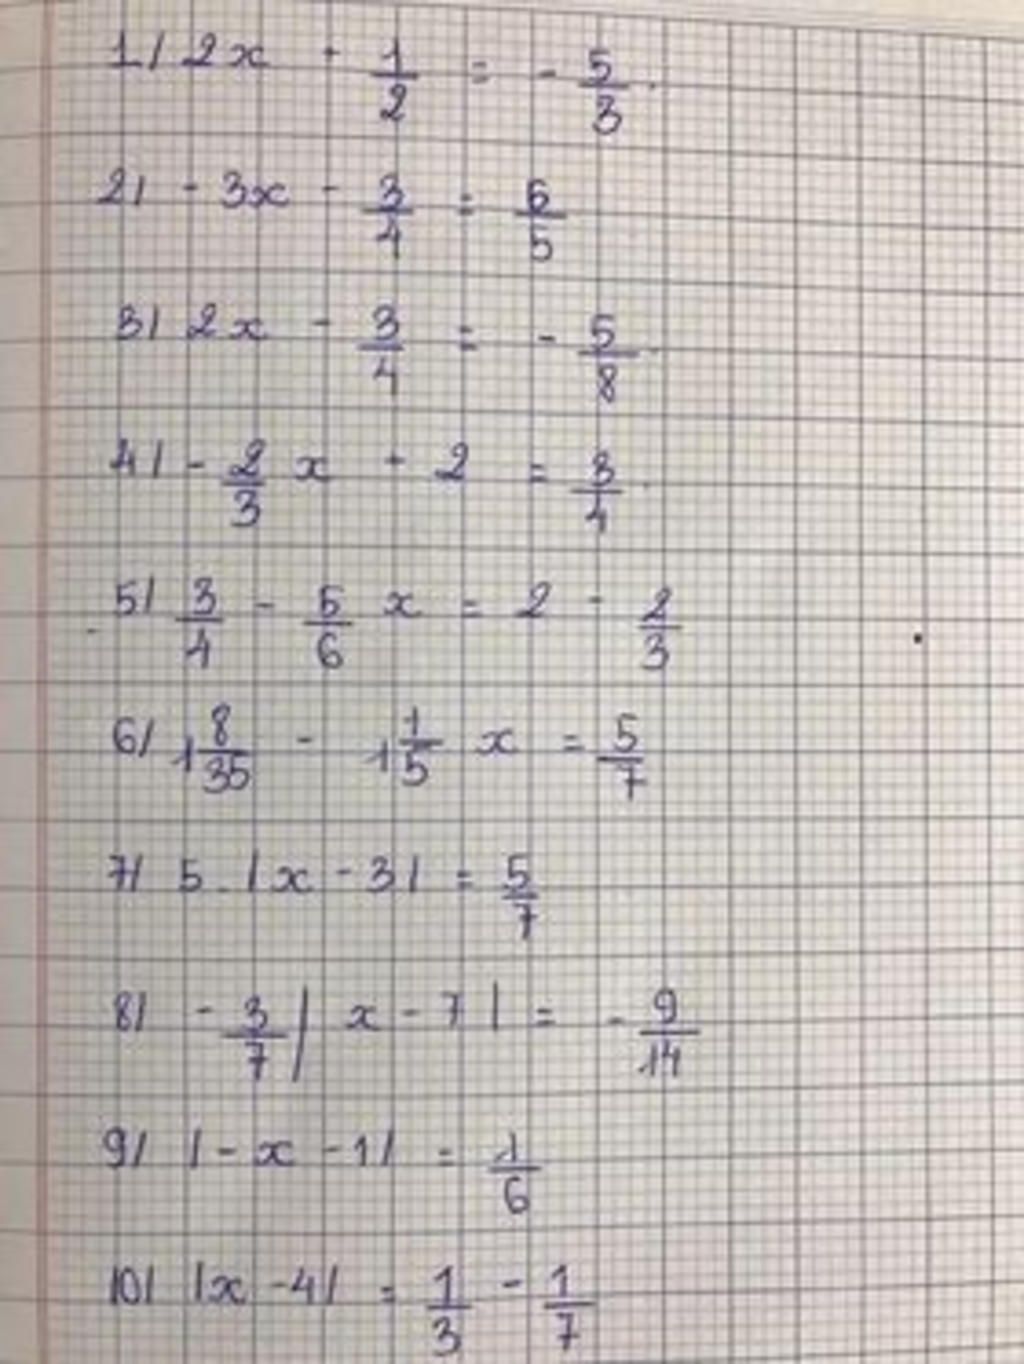 1/ 2x - 1/2 = - 5/3
2/ - 3x - 3/4 = 6/5
3/ 2x - 3/4 = - 5/8
4/ - 2/3 x + 2 = 3/4
5/ 3/4 - 5/6 x = 2 - 2/3
6/ 1 8/35 - 1 1/5 x = 5/7
7/ 5 . |x - 3| = 5/7
8/ - 3/7 | x - 7 | = - 9/14
9/ |- x - 1| = 1/6
10/ |x - 4| = 1/3 - 1/7